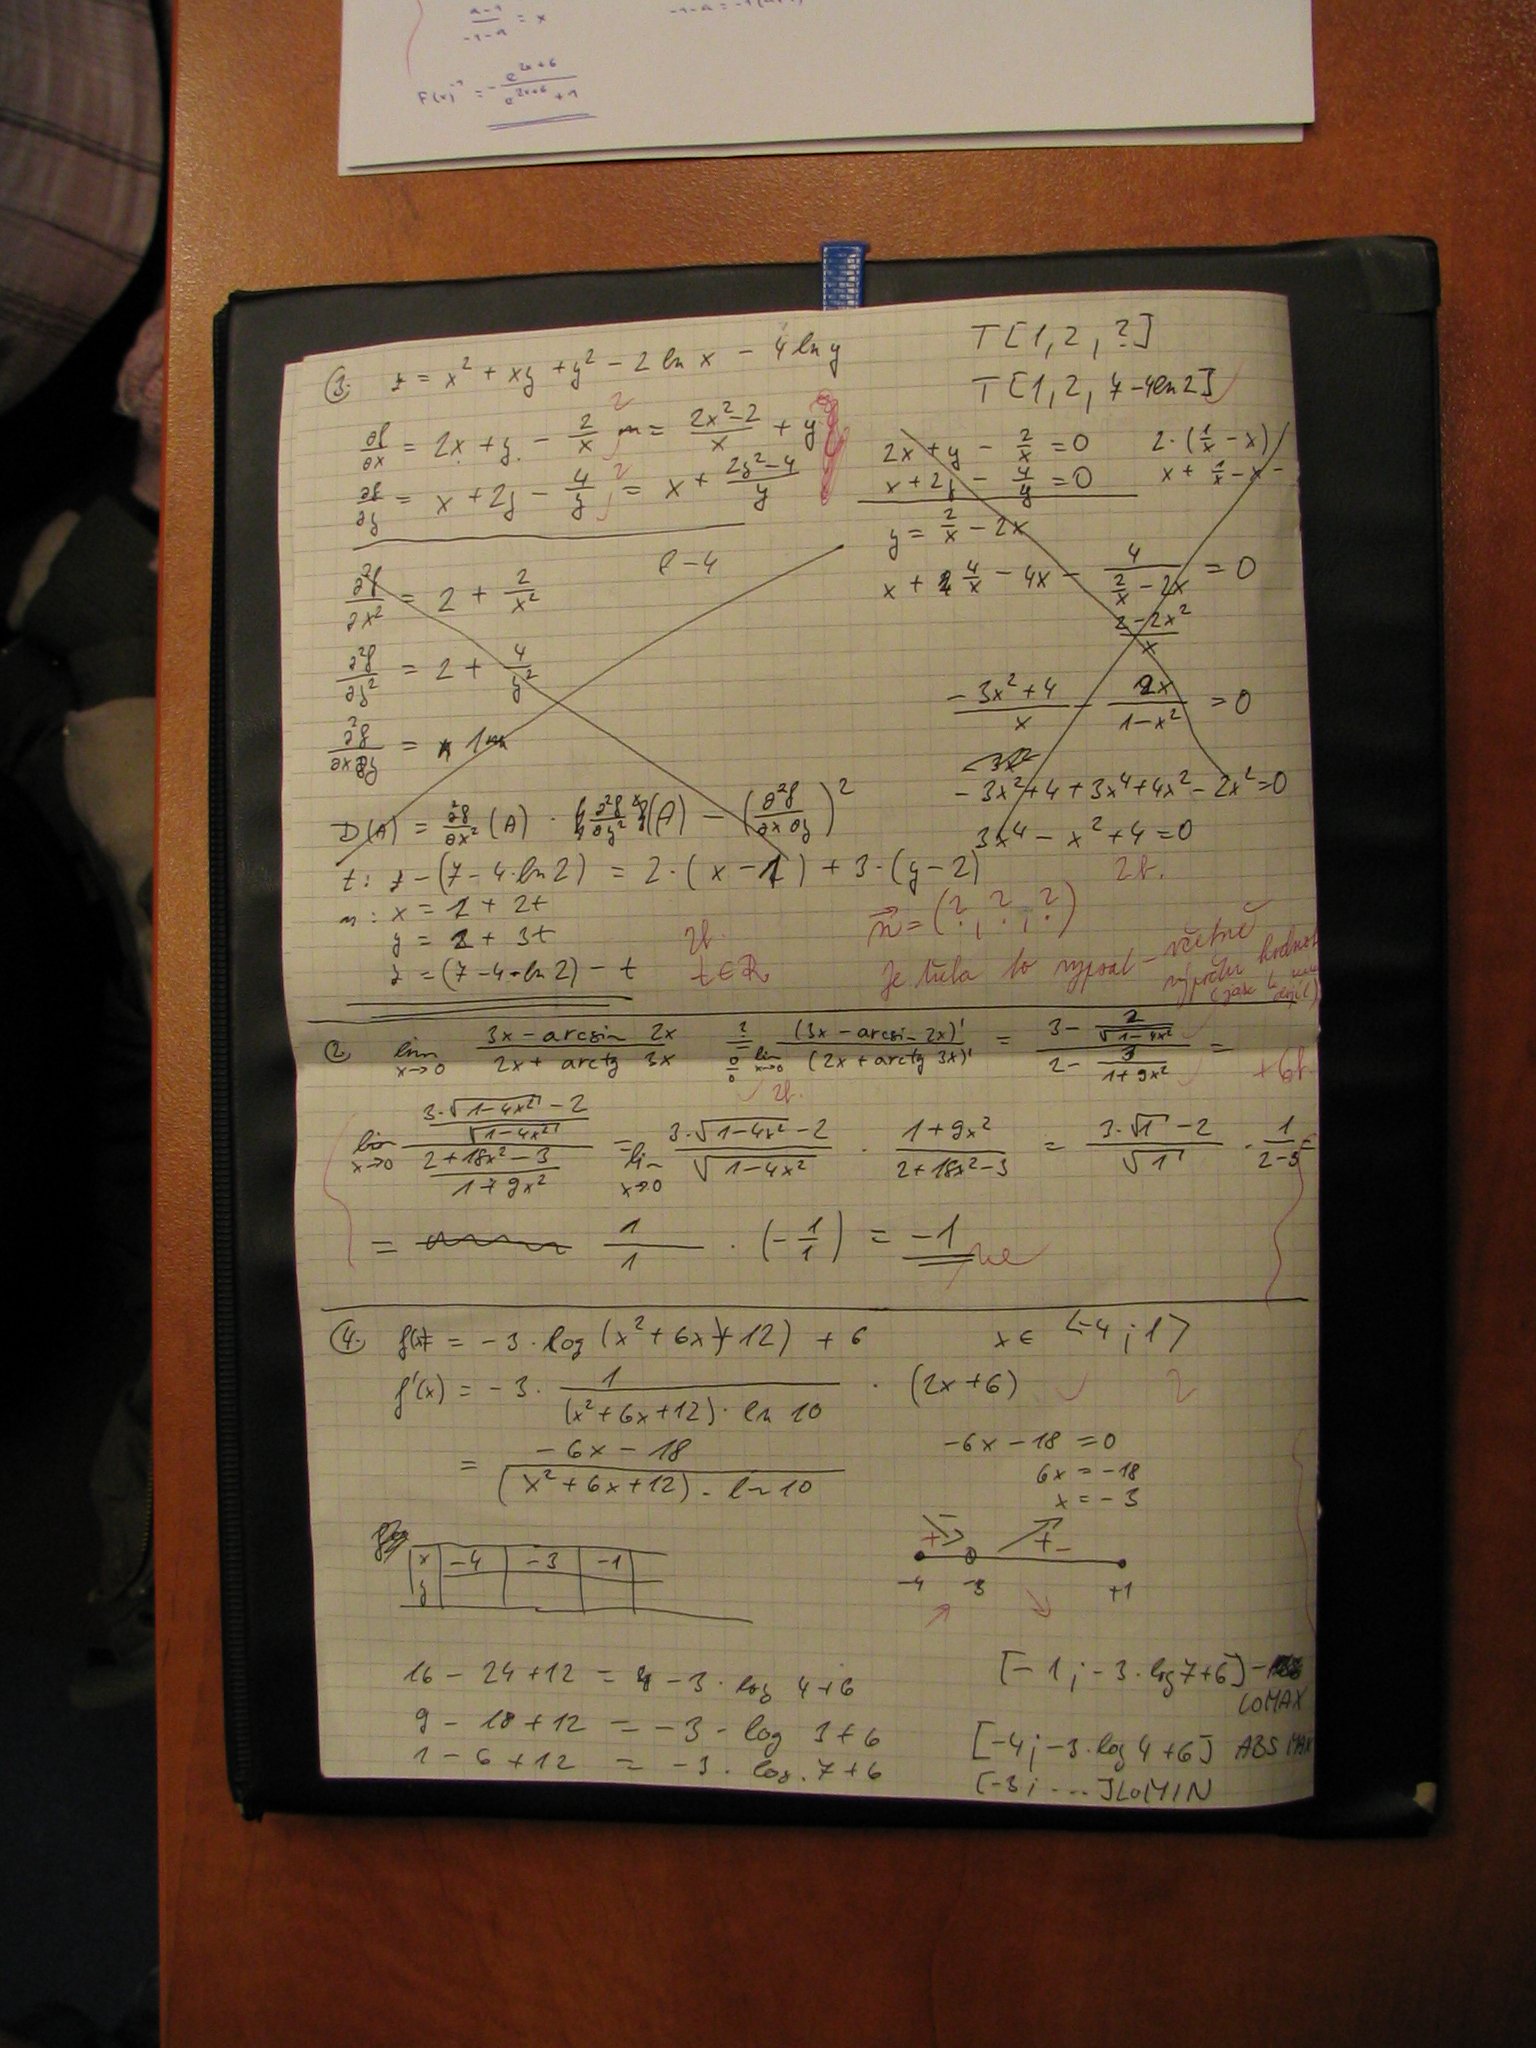 -1-a
= x
F(x)⁻¹ = - e^(2x+6) / (e^(2x+6) + 1)
3. z = x² + xy + y² - 2 ln x - 4 ln y
T[1, 2, ?]
T[1, 2, 7-4ln2]
∂f/∂x = 2x + y - 2/x = (2x²-2)/x + y
2
∂f/∂y = x + 2y - 4/y = x + (2y²-4)/y
2
2x + y - 2/x = 0
2·(1/x - x)
x + 2y - 4/y = 0
x + 1/x - x -
y = 2/x - 2x
x + 4/x - 4x - 4/(2/x - 2x) = 0
(2-2x²)/x
(-3x²+4)/x - 2x/(1-x²) = 0
-3x²+4+3x⁴+4x²-2x²=0
3x⁴ - x² + 4 = 0
∂²f/∂x² = 2 + 2/x²
∂²f/∂y² = 2 + 4/y²
∂²f/∂x∂y = 1
D(A) = ∂²f/∂x² (A) · ∂²f/∂y² (A) - (∂²f/∂x∂y)²
t: z - (7-4·ln2) = 2·(x-1) + 3·(y-2)
2b.
n: x = 1 + 2t
y = 2 + 3t
z = (7-4·ln2) - t
2b.
t∈R
n⃗ = (?, ?, ?)
Je třeba to vypsat - včetně
výpočtu hodnot
2. lim x→0 (3x - arcsin 2x)/(2x + arctg 3x) ?= 0/0 lim x→0 (3x - arcsin 2x)'/(2x + arctg 3x)' = (3 - 2/√(1-4x²))/(2 - 3/(1+9x²)) =
2b.
lim x→0 ((3·√(1-4x²) - 2)/√(1-4x²))/((2+18x²-3)/(1+9x²)) = lim x→0 (3·√(1-4x²) - 2)/√(1-4x²) · (1+9x²)/(2+18x²-3) = (3·√1 - 2)/√1 · 1/(2-3) =
= 1/1 · (-1/1) = -1
ne
4. f(x) = -3·log(x²+6x+12) + 6
x∈ <-4;1>
f'(x) = -3 · 1/((x²+6x+12)·ln 10) · (2x+6)
2
= (-6x-18)/((x²+6x+12)·ln10)
-6x-18 = 0
6x = -18
x = -3
x -4 -3 -1
y
+ - + -
-4 -3 +1
16 - 24 + 12 = 4 -3·log 4+6
9 - 18 + 12 = -3 - log 3+6
1 - 6 + 12 = -3·log.7+6
[-1;-3·log7+6] -
LOMAX
[-4;-3·log 4+6] ABS MAX
[-3; ...] LOMIN